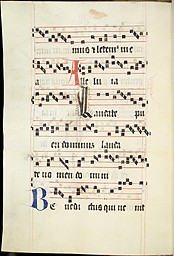 mus & letemur in ea
Alle lu ia
Laudate pu
eri dominus lauda
te no men do mini
Be nedi ctus qui ve nit